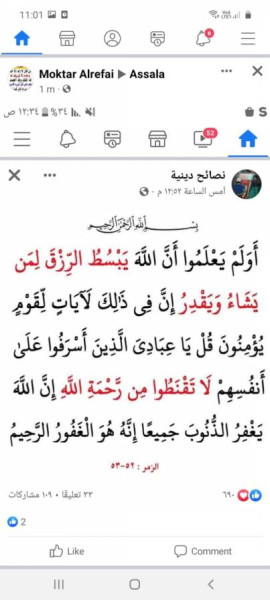 11:01
6
Moktar Alrefai ▶ Assala
1 m
١٢:٣٤ ص
٣٤%
S
52
نصائح دينية
أمس الساعة ١٢:٥٢ م
بسم الله الرحمن الرحيم
أَوَلَمْ يَعْلَمُوا أَنَّ اللَّهَ يَبْسُطُ الرِّزْقَ لِمَن
يَشَاءُ وَيَقْدِرُ إِنَّ فِي ذَٰلِكَ لَآيَاتٍ لِّقَوْمٍ
يُؤْمِنُونَ قُلْ يَا عِبَادِيَ الَّذِينَ أَسْرَفُوا عَلَىٰ
أَنفُسِهِمْ لَا تَقْنَطُوا مِن رَّحْمَةِ اللَّهِ إِنَّ اللَّهَ
يَغْفِرُ الذُّنُوبَ جَمِيعًا إِنَّهُ هُوَ الْغَفُورُ الرَّحِيمُ
الزمر : ٥٢-٥٣
٦٩٠
٣٢ تعليقًا • ١٠٩ مشاركات
2
Like
Comment